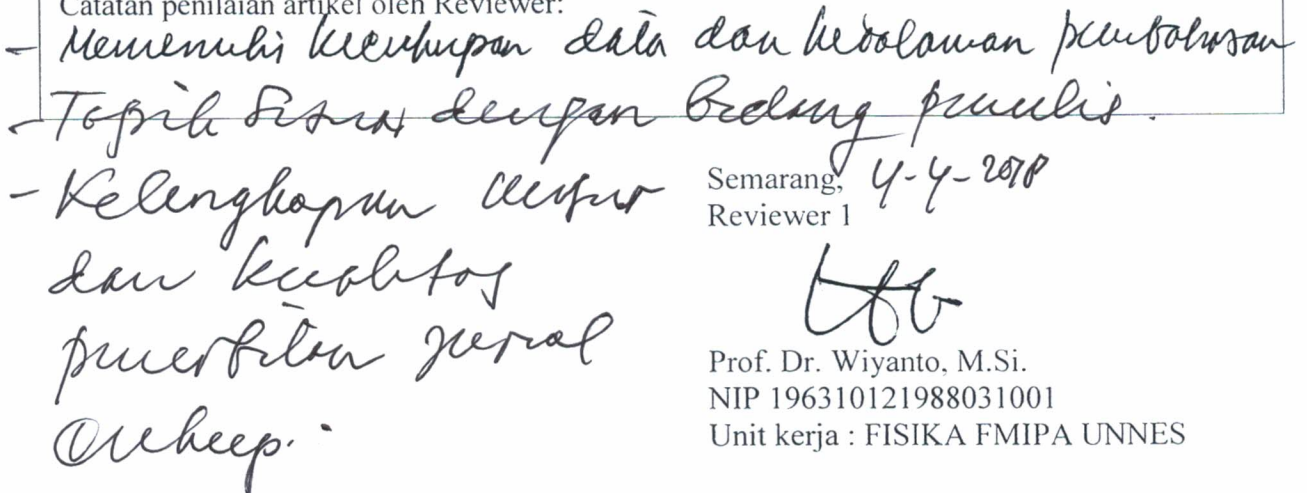 Catatan penilaian artikel oleh Reviewer:
- Memenuhi kecukupan data dan kedalaman pembahasan
- Topik sesuai dengan bidang penulis.
- Kelengkapan unsur
dan kualitas
penerbitan jurnal
cukup.
Semarang, 4-4-2018
Reviewer 1
Prof. Dr. Wiyanto, M.Si.
NIP 196310121988031001
Unit kerja : FISIKA FMIPA UNNES